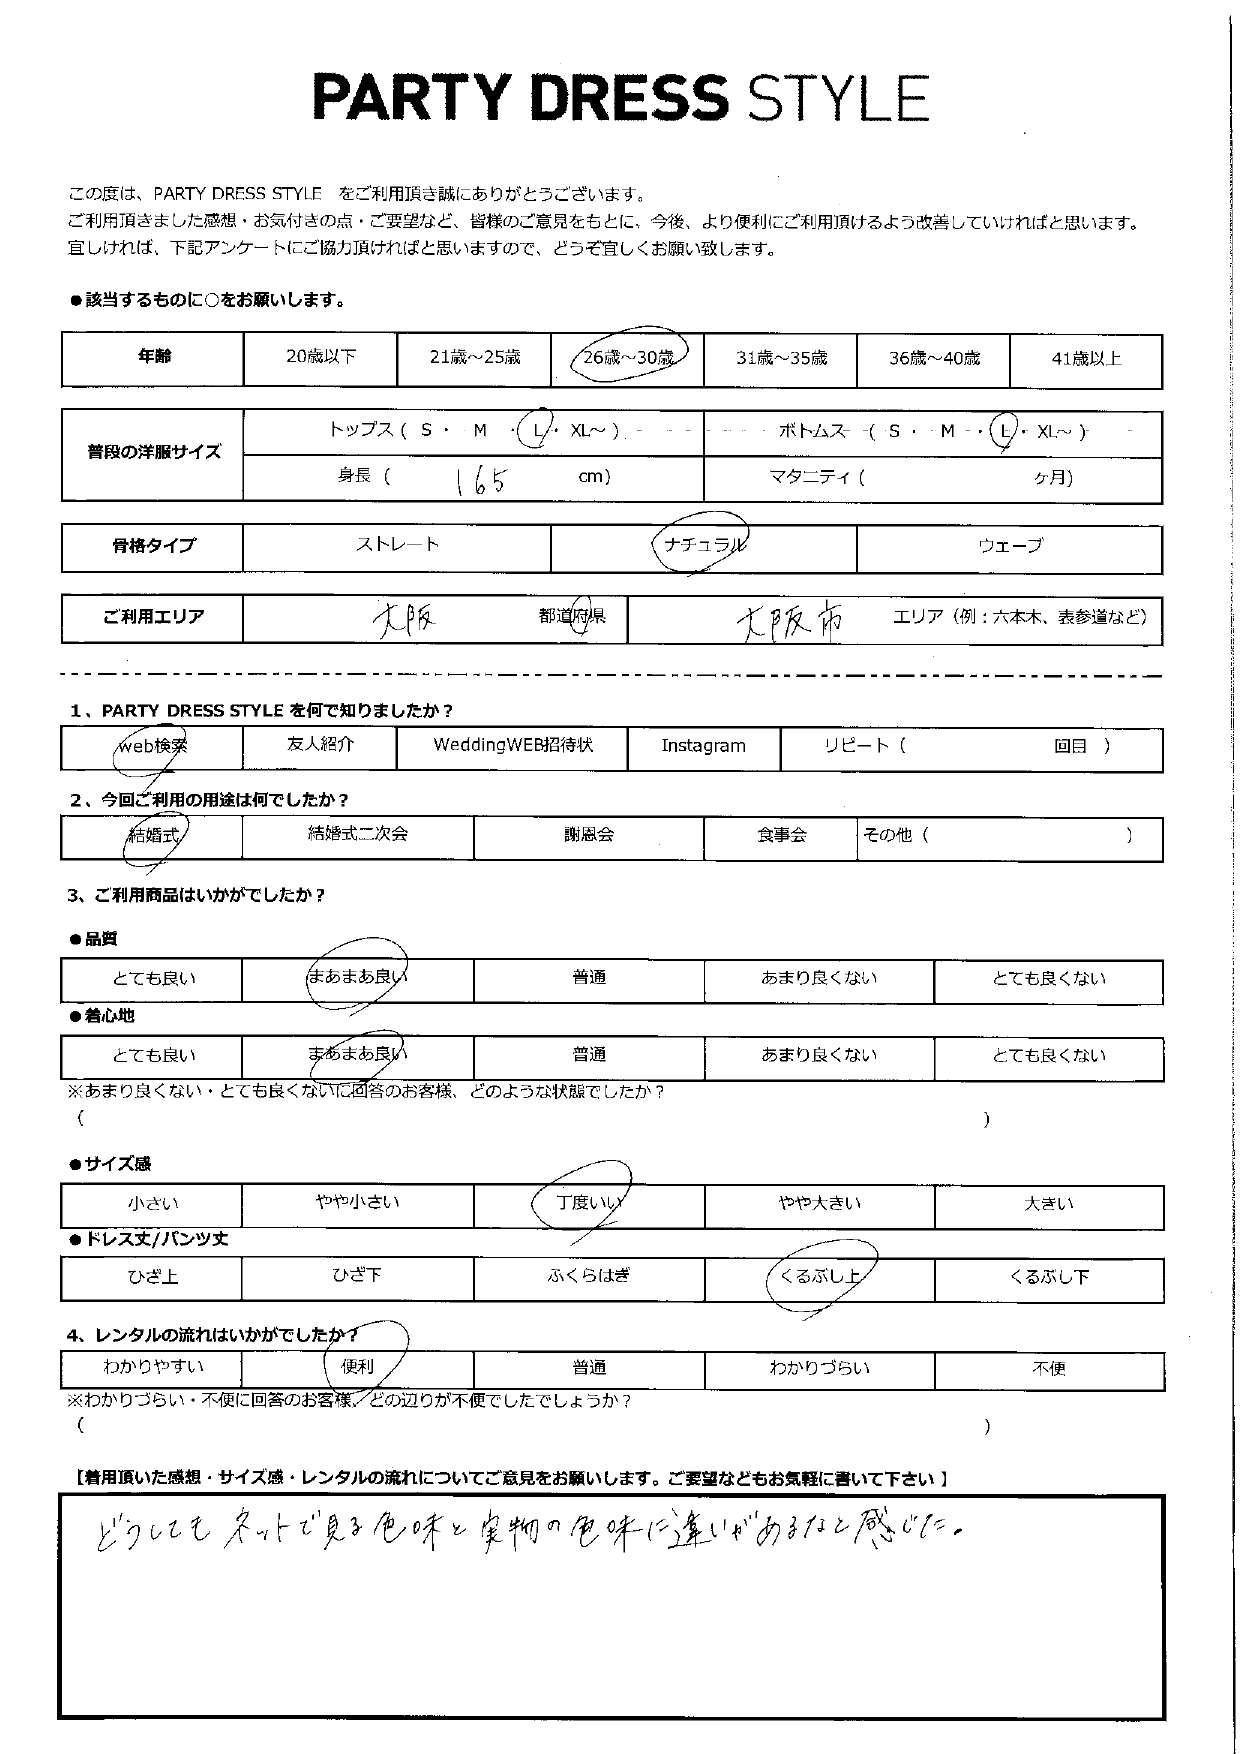 PARTY DRESS STYLE
この度は、PARTY DRESS STYLE をご利用頂き誠にありがとうございます。
ご利用頂きました感想・お気付きの点・ご要望など、皆様のご意見をもとに、今後、より便利にご利用頂けるよう改善していければと思います。
宜しければ、下記アンケートにご協力頂ければと思いますので、どうぞ宜しくお願い致します。
●該当するものに○をお願いします。
年齢 20歳以下 21歳～25歳 26歳～30歳 31歳～35歳 36歳～40歳 41歳以上
普段の洋服サイズ トップス ( S ・ M ・ L ・ XL～ ) ボトムス ( S ・ M ・ L ・ XL～ )
身長 ( 165 cm) マタニティ ( ヶ月)
骨格タイプ ストレート ナチュラル ウェーブ
ご利用エリア 大阪 都道府県 大阪市 エリア（例：六本木、表参道など）
1、PARTY DRESS STYLE を何で知りましたか？
web検索 友人紹介 WeddingWEB招待状 Instagram リピート（ 回目 ）
2、今回ご利用の用途は何でしたか？
結婚式 結婚式二次会 謝恩会 食事会 その他（ ）
3、ご利用商品はいかがでしたか？
●品質
とても良い まあまあ良い 普通 あまり良くない とても良くない
●着心地
とても良い まあまあ良い 普通 あまり良くない とても良くない
※あまり良くない・とても良くないに回答のお客様、どのような状態でしたか？
（ ）
●サイズ感
小さい やや小さい 丁度いい やや大きい 大きい
●ドレス丈/パンツ丈
ひざ上 ひざ下 ふくらはぎ くるぶし上 くるぶし下
4、レンタルの流れはいかがでしたか？
わかりやすい 便利 普通 わかりづらい 不便
※わかりづらい・不便に回答のお客様、どの辺りが不便でしたでしょうか？
（ ）
【着用頂いた感想・サイズ感・レンタルの流れについてご意見をお願いします。ご要望などもお気軽に書いて下さい】
どうしてもネットで見る色味と実物の色味に違いがあるなと感じた。